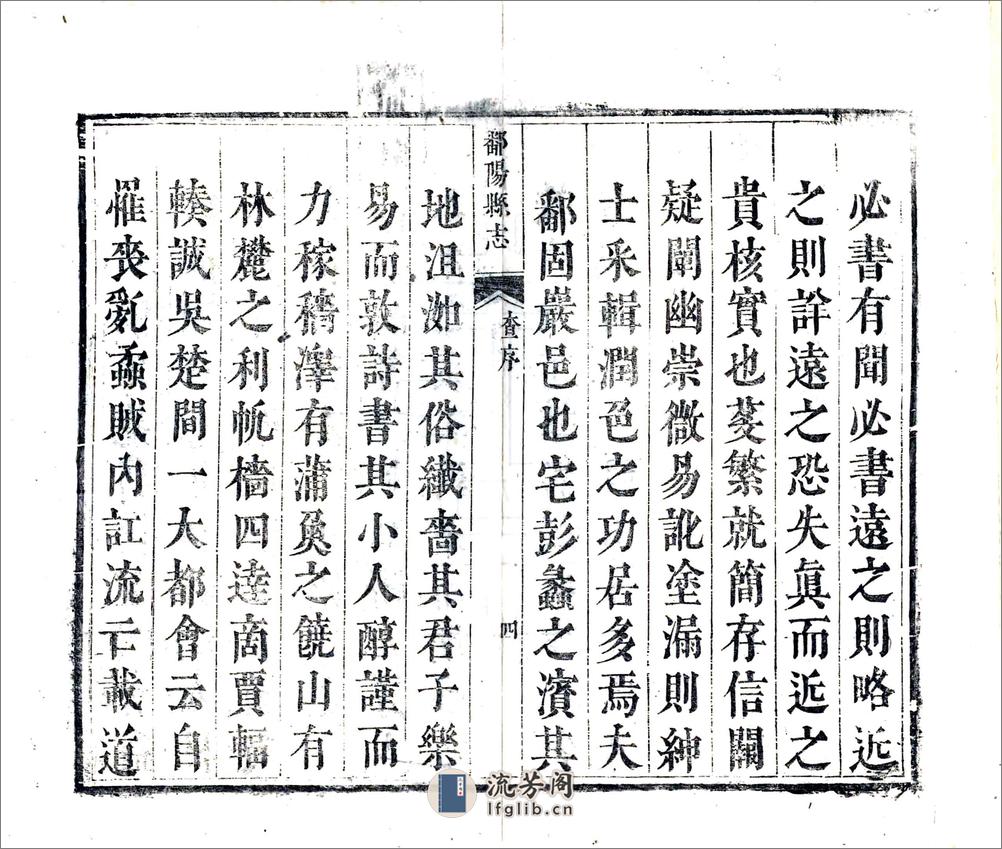 必書有聞必書遠之則略近
之則詳遠之恐失眞而近之
貴核實也芟繁就簡存信闕
疑闡幽崇微易訛塗漏則紳
士釆輯潤色之功居多焉夫
鄱固巖邑也宅彭蠡之濱其
鄱陽縣志
查序
四
地沮洳其俗纎嗇其君子樂
易而敦詩書其小人醇謹而
力稼穡澤有蒲魚之饒山有
林麓之利帆檣四達啇賈輻
輳誠吳楚間一大都會云自
罹喪亂蟊賊内訌流亡載道
流芳阁
lfglib.cn